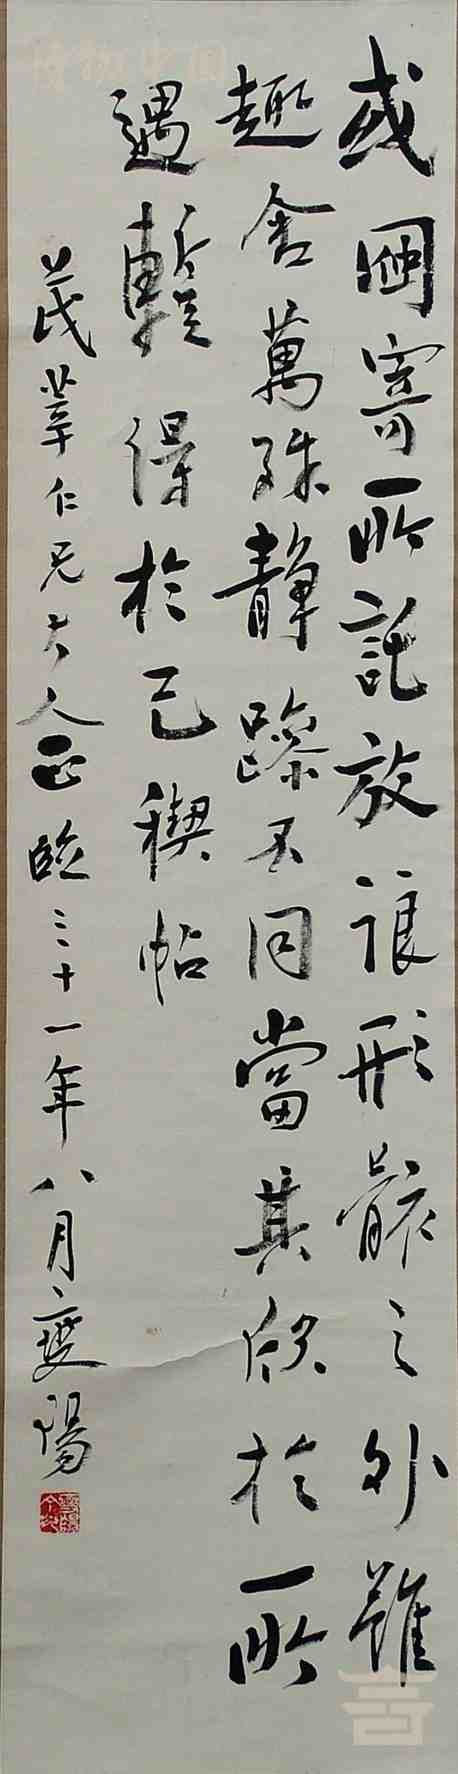 或因寄所託放浪形骸之外雖
趣舍萬殊靜躁不同當其欣於所
遇蹔得於己稧帖
仁兄大人正臨三十一年八月